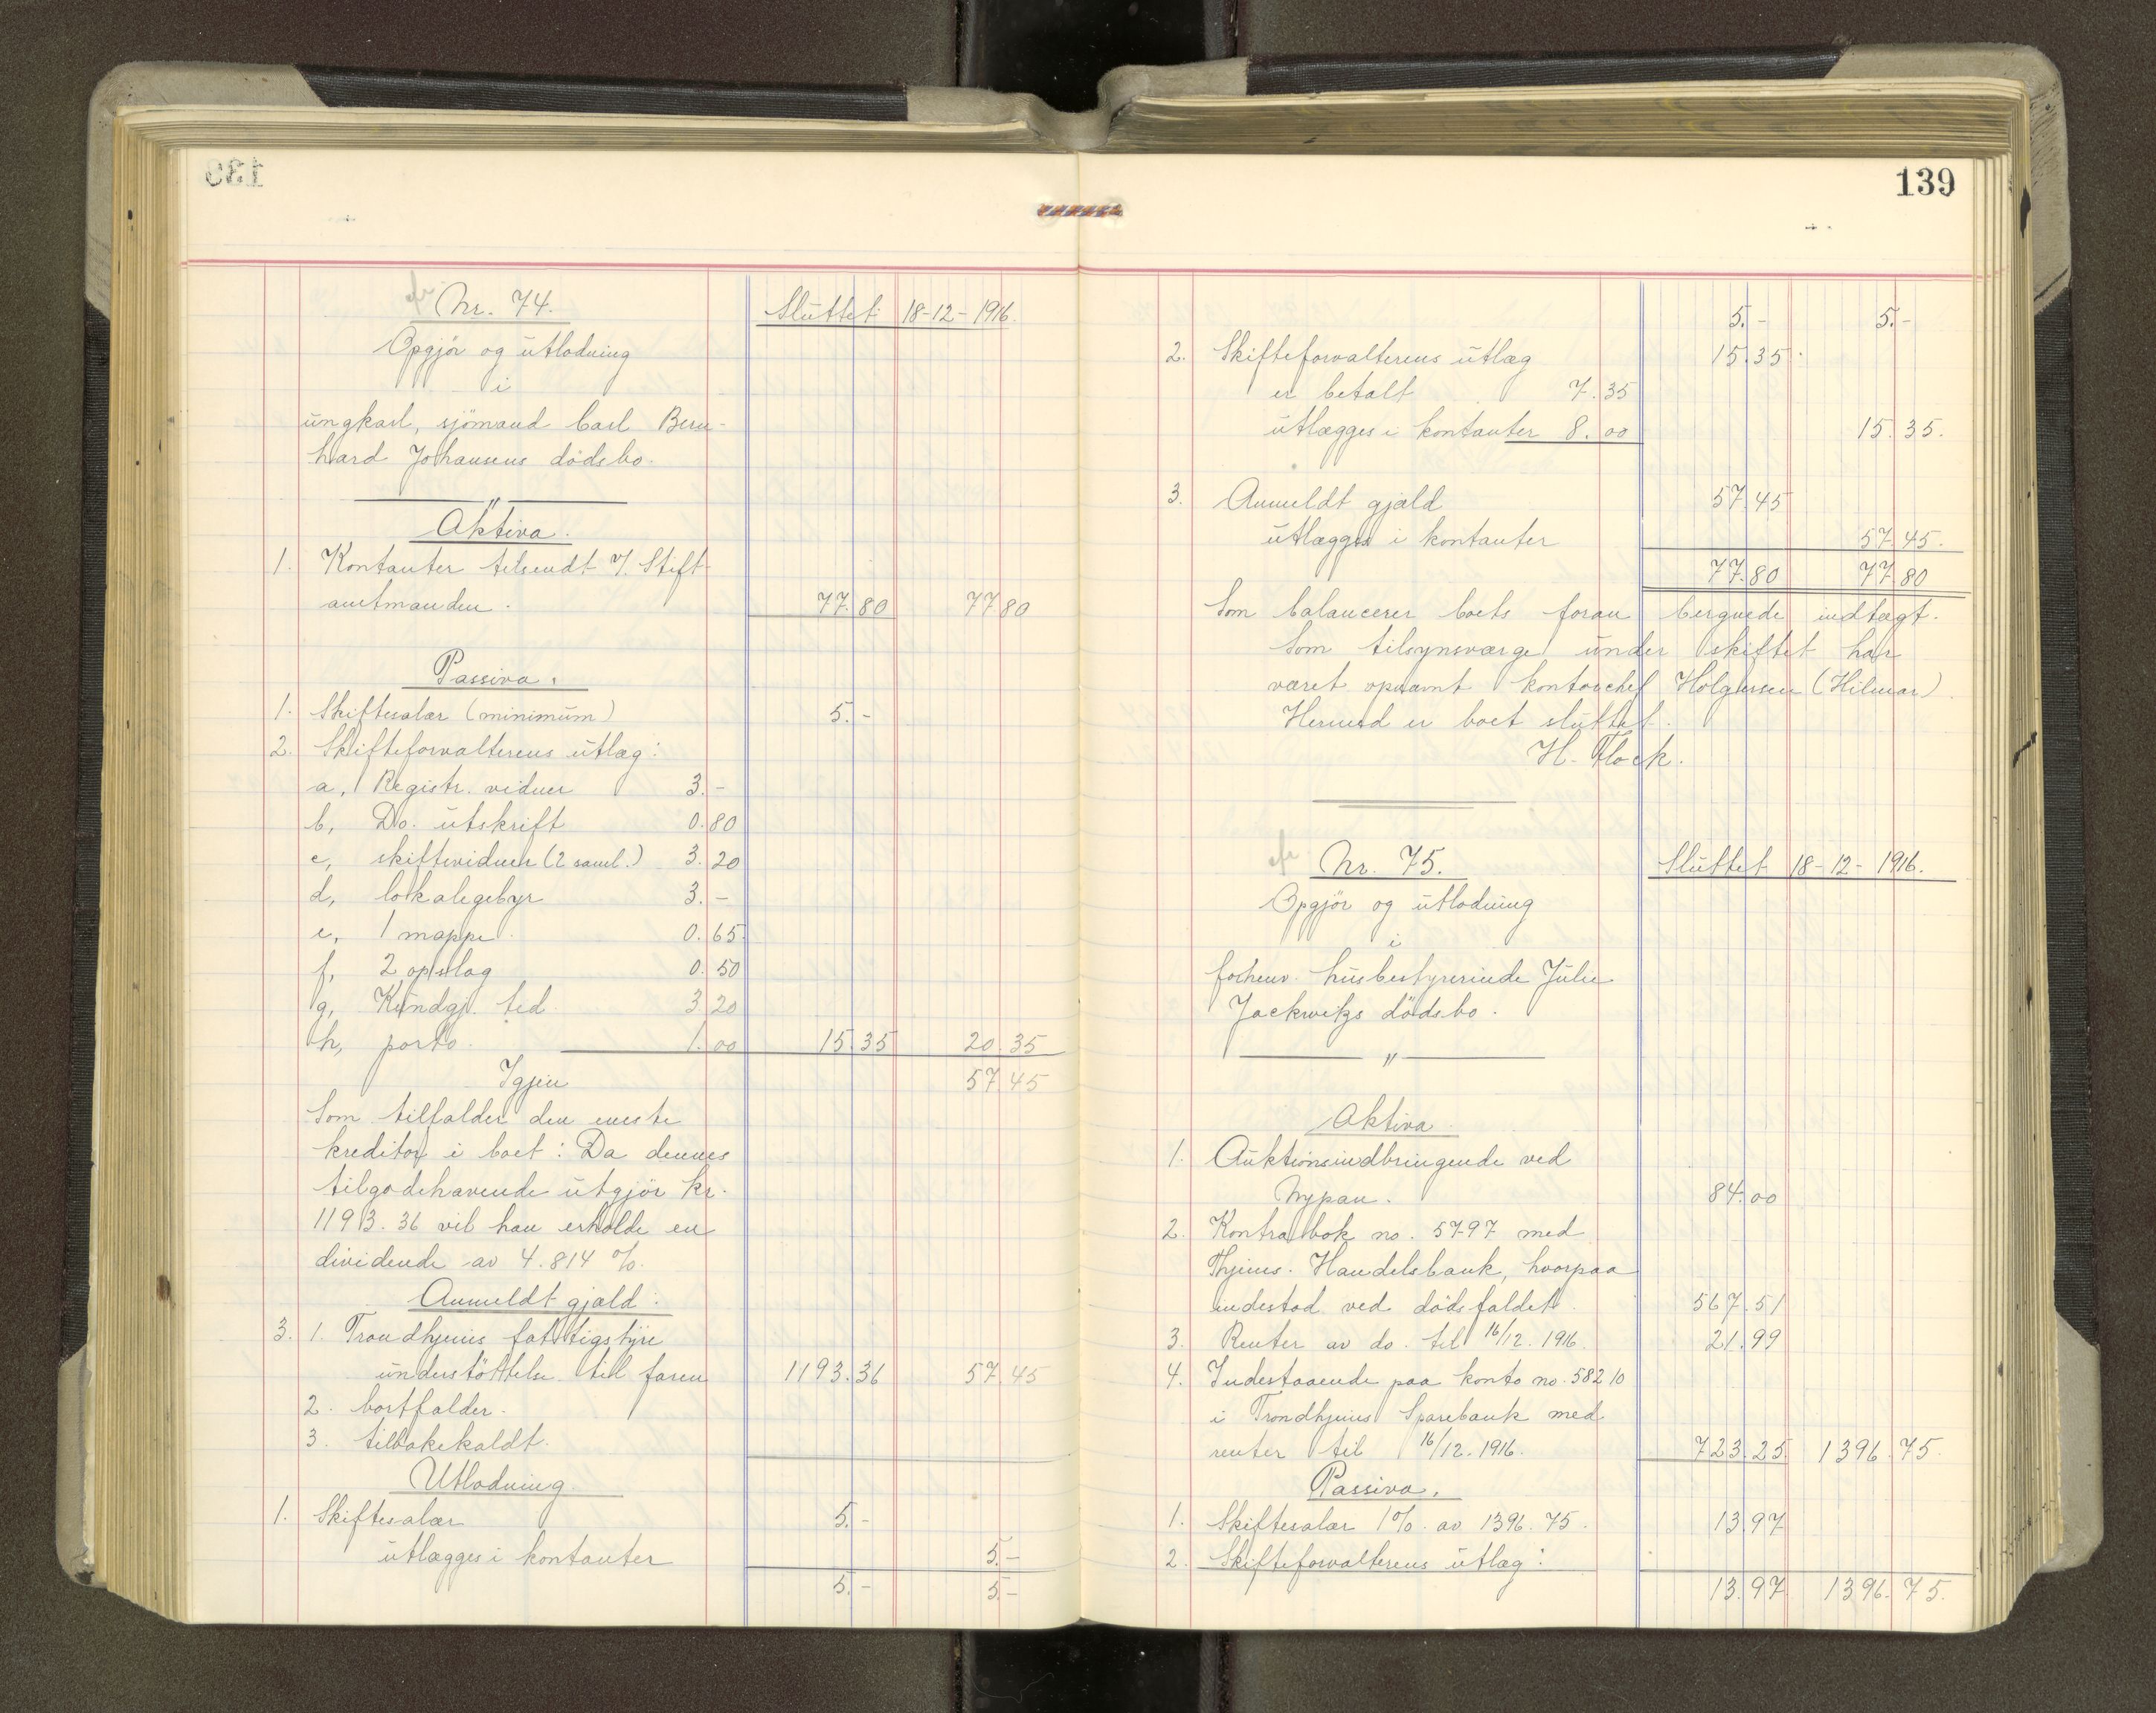 139
Nr. 74. Sluttet 18-12-1916.
Opgjör og utlodning
i
ungkarl, sjömand Carl Bern-
hard Johansens dödsbo.
"
Aktiva.
1. Kontanter tilsendt v/. Stift-
amtmanden. 77.80 77.80
Passiva.
1. Skiftesalær (minimum) 5.-
2. Skifteforvalterens utlæg:
a, Registr. vidner 3.-
b, Do. utskrift 0.80
c, skiftevidner (2 saml.) 3.20
d, lokalegebyr 3.-
e, 1 mappe 0.65
f, 2 opslag 0.50
g, Kundgj. tid 3.20
h, porto. 1.00 15.35 20.35
Igjen 57.45
Som tilfalder den eneste
kreditor i boet: Da dennes
tilgodehavende utgjör kr.
1193.36 vil han erholde en
dividende av 4.814 %.
Anmeldt gjæld:
3. 1. Trondhjems fattigstyre
understöttelse til faren 1193.36 57.45
2. bortfalder.
3. tilbakekaldt.
Utlodning
1. Skiftesalær 5.-
utlægges i kontanter 5.-
5.- 5.-
139
5.- 5.-
2. Skifteforvalterens utlæg 15.35
er betalt 7.35
utlægges i kontanter 8.00 15.35.
3. Anmeldt gjæld 57.45
utlægges i kontanter 57.45.
77.80 77.80
Som balancerer boets foran bergnede indtægt.
Som tilsynsværge under skiftet har
været opnævnt kontorchef Holgersen (Hilmar).
Hermed er boet sluttet.
H. Flock.
Nr. 75. Sluttet 18-12-1916.
Opgjör og utlodning
i
forhenv. husbestyrerinde Julie
Jackwitzs dödsbo.
"
Aktiva
1. Auktionsindbringende ved
Nypan. 84.00
2. Kontrabok no. 5797 med
Thjems. Handelsbank, hvorpaa
indestod ved dödsfaldet. 567.51
3. Renter av do. til 16/12. 1916. 21.99
4. Indestaaende paa konto no. 58210
i Trondhjems Sparebank med
renter til 16/12. 1916. 723.25 1396.75.
Passiva.
1. Skiftesalær 1%. av 1396.75. 13.97
2. Skifteforvalterens utlæg:
13.97 1396.75.